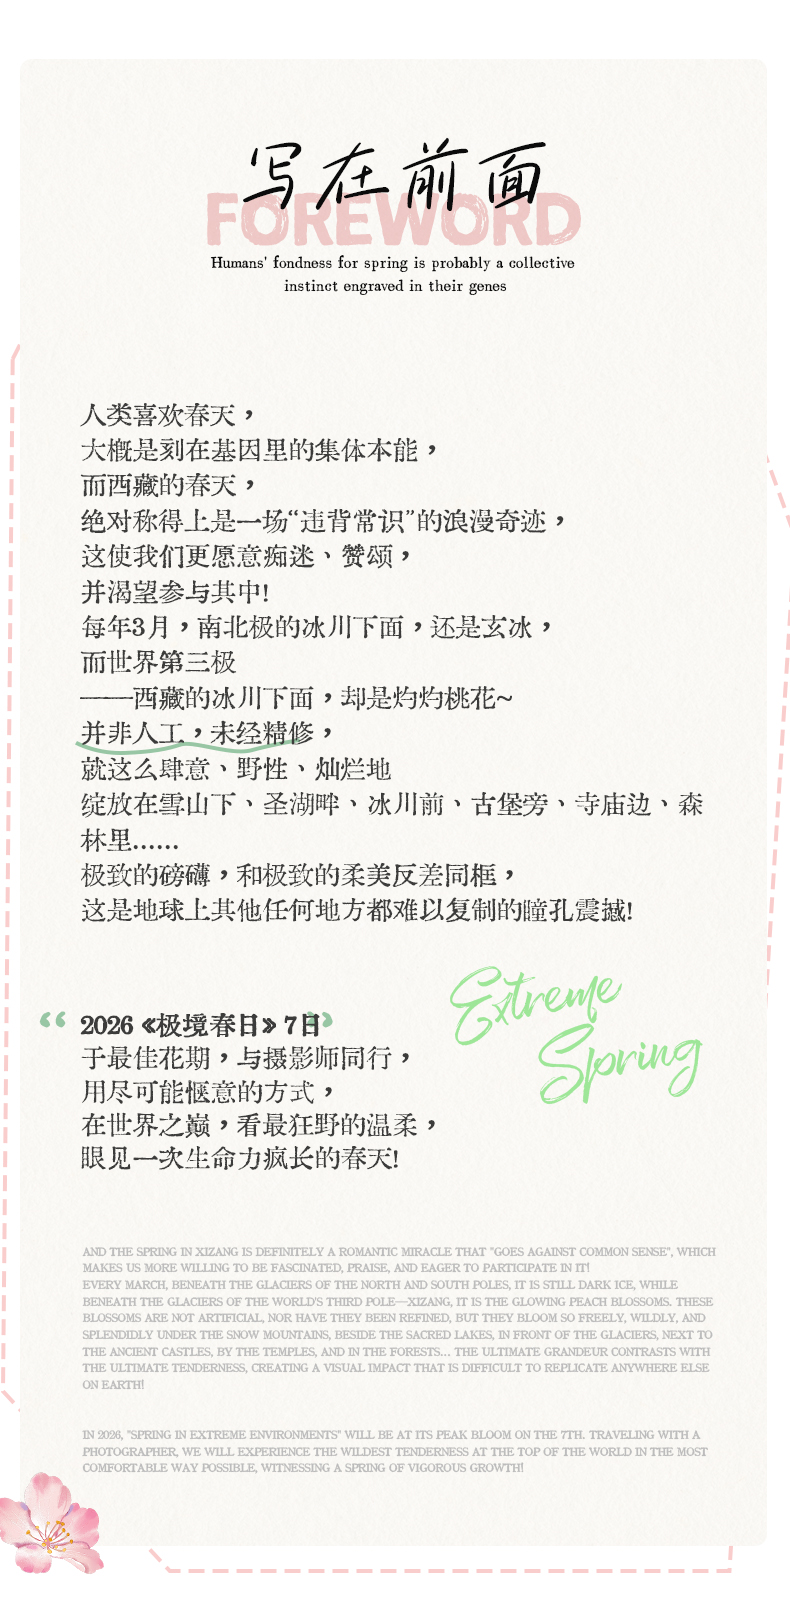 写在前面
FOREWORD
Humans' fondness for spring is probably a collective
instinct engraved in their genes
人类喜欢春天，
大概是刻在基因里的集体本能，
而西藏的春天，
绝对称得上是一场“违背常识”的浪漫奇迹，
这使我们更愿意痴迷、赞颂，
并渴望参与其中!
每年3月，南北极的冰川下面，还是玄冰，
而世界第三极
——西藏的冰川下面，却是灼灼桃花~
并非人工，未经精修，
就这么肆意、野性、灿烂地
绽放在雪山下、圣湖畔、冰川前、古堡旁、寺庙边、森
林里......
极致的磅礴，和极致的柔美反差同框，
这是地球上其他任何地方都难以复制的瞳孔震撼!
Extreme
Spring
“2026《极境春日》7日”
于最佳花期，与摄影师同行，
用尽可能惬意的方式，
在世界之巅，看最狂野的温柔，
眼见一次生命力疯长的春天!
AND THE SPRING IN XIZANG IS DEFINITELY A ROMANTIC MIRACLE THAT "GOES AGAINST COMMON SENSE", WHICH
MAKES US MORE WILLING TO BE FASCINATED, PRAISE, AND EAGER TO PARTICIPATE IN IT!
EVERY MARCH, BENEATH THE GLACIERS OF THE NORTH AND SOUTH POLES, IT IS STILL DARK ICE, WHILE
BENEATH THE GLACIERS OF THE WORLD'S THIRD POLE—XIZANG, IT IS THE GLOWING PEACH BLOSSOMS. THESE
BLOSSOMS ARE NOT ARTIFICIAL, NOR HAVE THEY BEEN REFINED, BUT THEY BLOOM SO FREELY, WILDLY, AND
SPLENDIDLY UNDER THE SNOW MOUNTAINS, BESIDE THE SACRED LAKES, IN FRONT OF THE GLACIERS, NEXT TO
THE ANCIENT CASTLES, BY THE TEMPLES, AND IN THE FORESTS... THE ULTIMATE GRANDEUR CONTRASTS WITH
THE ULTIMATE TENDERNESS, CREATING A VISUAL IMPACT THAT IS DIFFICULT TO REPLICATE ANYWHERE ELSE
ON EARTH!
IN 2026, "SPRING IN EXTREME ENVIRONMENTS" WILL BE AT ITS PEAK BLOOM ON THE 7TH. TRAVELING WITH A
PHOTOGRAPHER, WE WILL EXPERIENCE THE WILDEST TENDERNESS AT THE TOP OF THE WORLD IN THE MOST
COMFORTABLE WAY POSSIBLE, WITNESSING A SPRING OF VIGOROUS GROWTH!